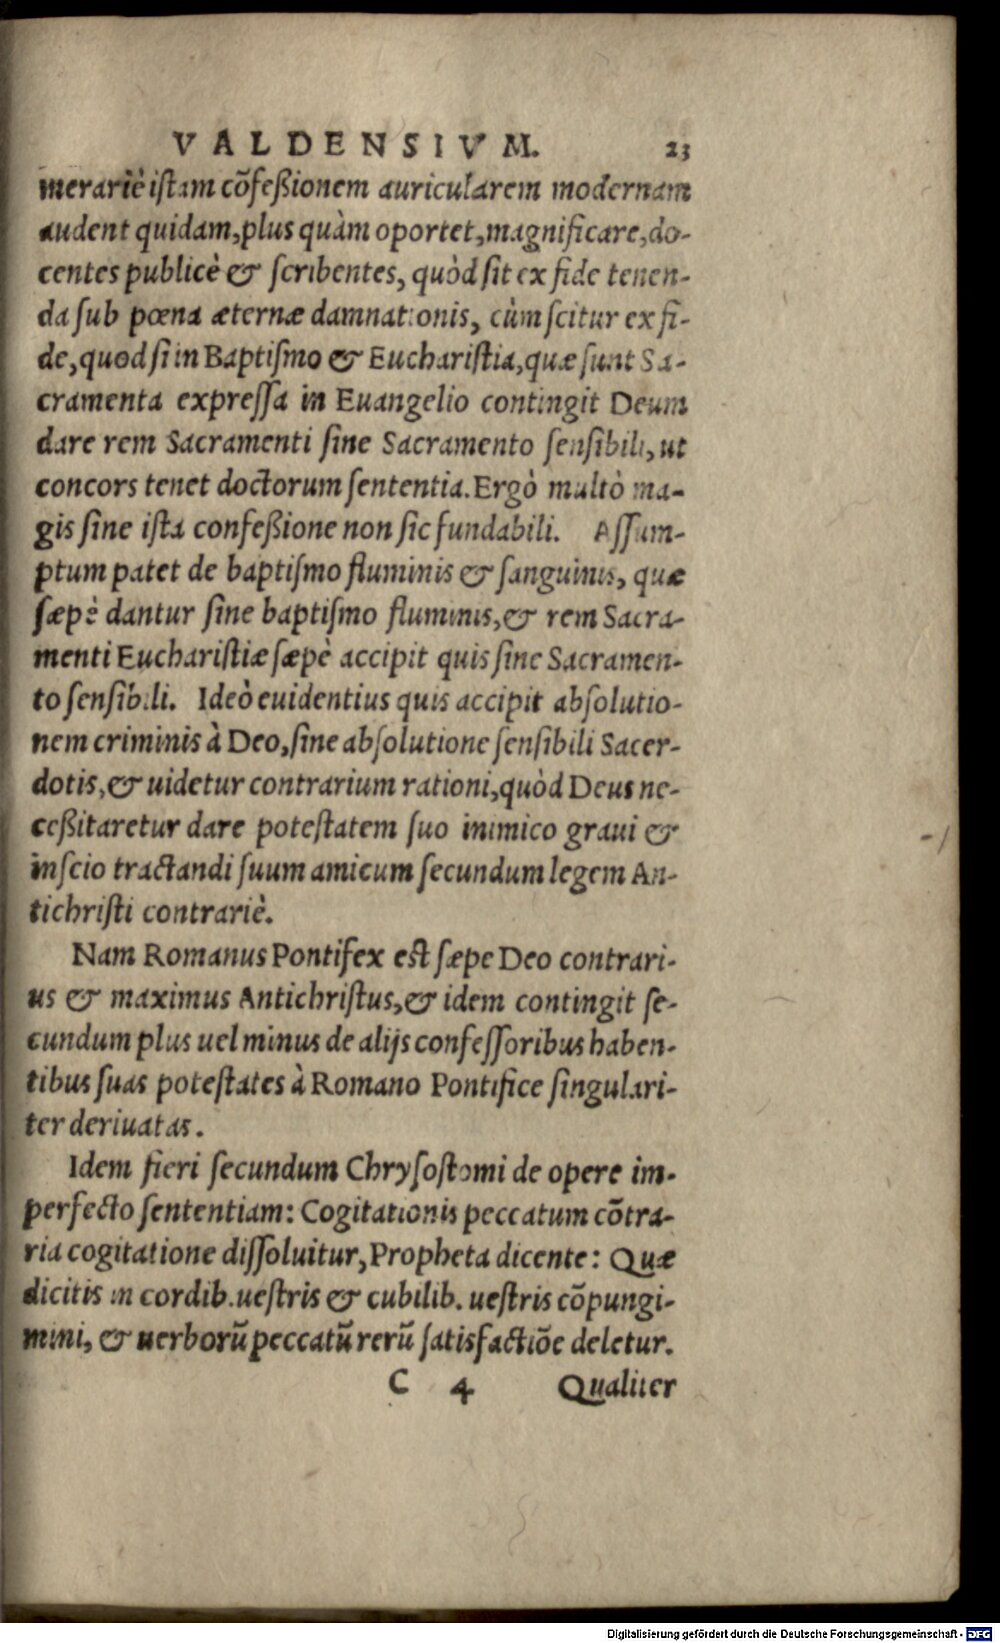 VALDENSIVM. 23
merariè istam cõfeßionem auricularem modernam
audent quidam, plus quàm oportet, magnificare, do-
centes publicè & scribentes, quòd sit ex fide tenen-
da sub pœna æternæ damnationis, cùm scitur ex fi-
de, quod si in Baptismo & Eucharistia, quæ sunt Sa-
cramenta expressa in Euangelio contingit Deum
dare rem Sacramenti sine Sacramento sensibili, ut
concors tenet doctorum sententia. Ergò multò ma-
gis sine ista confeßione non sic fundabili. Assum-
ptum patet de baptismo fluminis & sanguinis, quæ
sæpè dantur sine baptismo fluminis, & rem Sacra-
menti Eucharistiæ sæpè accipit quis sine Sacramen-
to sensibili. Ideò euidentius quis accipit absolutio-
nem criminis à Deo, sine absolutione sensibili Sacer-
dotis, & uidetur contrarium rationi, quòd Deus ne-
ceßitaretur dare potestatem suo inimico graui &
inscio tractandi suum amicum secundum legem An-
tichristi contrariè.
Nam Romanus Pontifex est sæpe Deo contrari-
us & maximus Antichristus, & idem contingit se-
cundum plus uel minus de alijs confessoribus haben-
tibus suas potestates à Romano Pontifice singulari-
ter deriuatas.
Idem fieri secundum Chrysostomi de opere im-
perfecto sententiam: Cogitationis peccatum cõtra-
ria cogitatione dissoluitur, Propheta dicente: Quæ
dicitis in cordib. uestris & cubilib. uestris cõpungi-
mini, & uerborũ peccatũ rerũ satisfactiõe deletur.
C 4 Qualiter
Digitalisierung gefördert durch die Deutsche Forschungsgemeinschaft - DFG